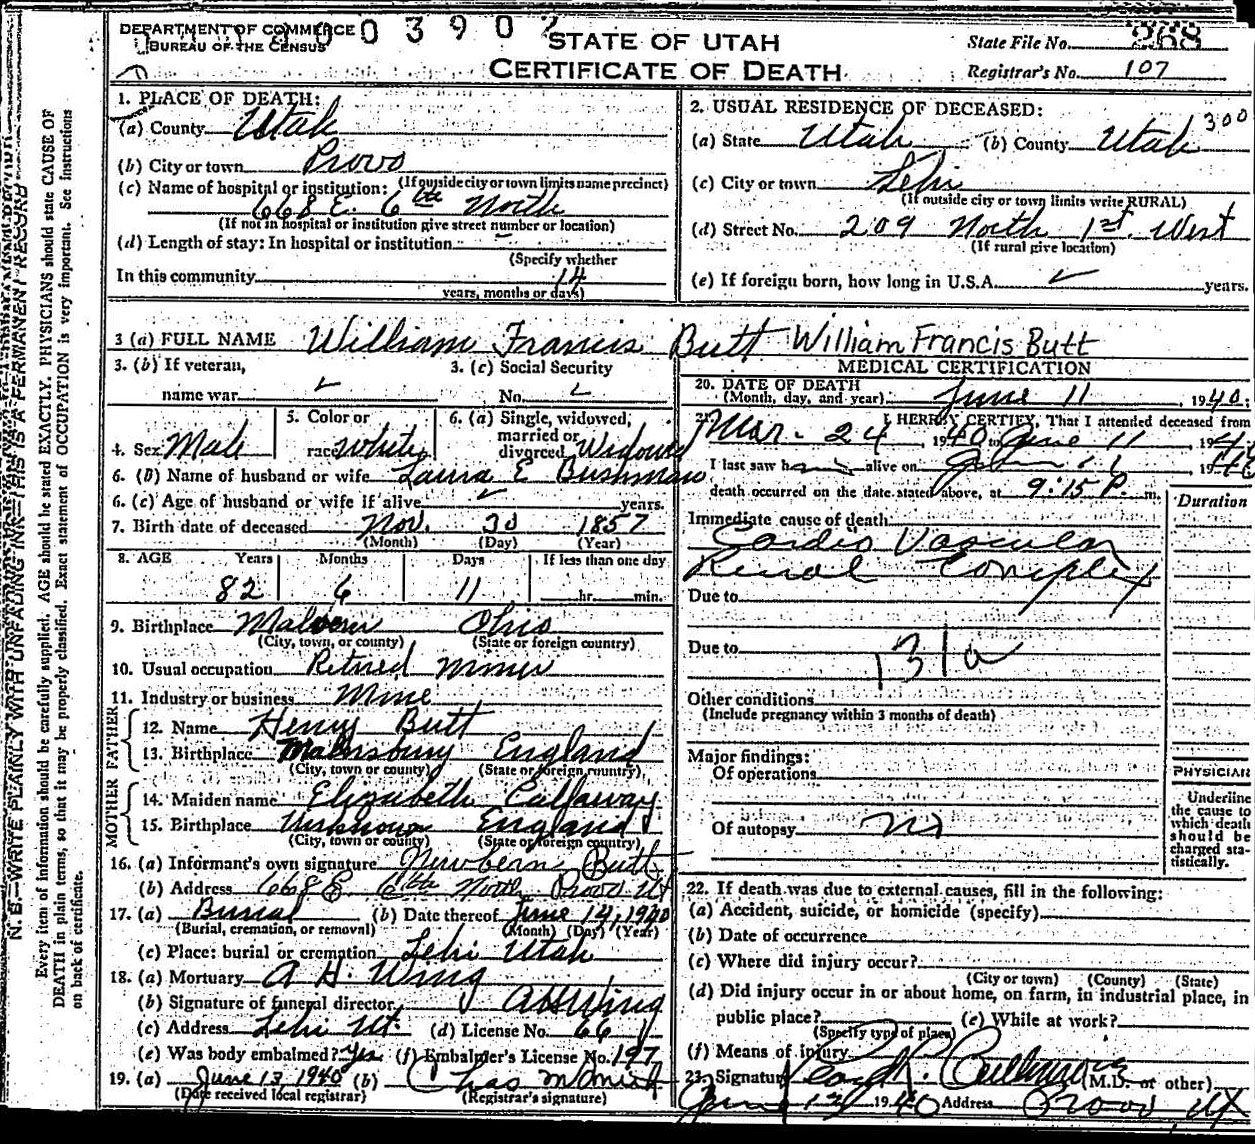 DEPARTMENT OF COMMERCE
BUREAU OF THE CENSUS
0 3 9 0 2
STATE OF UTAH
CERTIFICATE OF DEATH
State File No. 268
Registrar's No. 107
1. PLACE OF DEATH:
(a) County Utah
(b) City or town Provo
(If outside city or town limits name precinct)
(c) Name of hospital or institution:
668 E. 6th North
(If not in hospital or institution give street number or location)
(d) Length of stay: In hospital or institution
(Specify whether
In this community 14
years, months or days)
2. USUAL RESIDENCE OF DECEASED:
300
(a) State Utah (b) County Utah
(c) City or town Lehi
(If outside city or town limits write RURAL)
(d) Street No. 209 North 1st. West
(If rural give location)
(e) If foreign born, how long in U.S.A. years.
3 (a) FULL NAME William Francis Butt William Francis Butt
3. (b) If veteran,
name war
3. (c) Social Security
No.
4. Sex Male
5. Color or
race White
6. (a) Single, widowed,
married or
divorced Widowed
6. (b) Name of husband or wife Laura E Bushman
6. (c) Age of husband or wife if alive years.
7. Birth date of deceased Nov. 30 1857
(Month) (Day) (Year)
8. AGE Years Months Days If less than one day
82 6 11 hr. min.
9. Birthplace Malvern Ohio
(City, town, or county) (State or foreign country)
10. Usual occupation Retired Miner
11. Industry or business Mine
FATHER
12. Name Henry Butt
13. Birthplace England
(City, town or county) (State or foreign country)
MOTHER
14. Maiden name Elizabeth Callaway
15. Birthplace Unknown England
(City, town or county) (State or foreign country)
16. (a) Informant's own signature Newbern Butt
(b) Address 668 E 6th North Provo Ut
17. (a) Burial (b) Date thereof June 14, 1940
(Burial, cremation, or removal) (Month) (Day) (Year)
(c) Place: burial or cremation Lehi Utah
18. (a) Mortuary A H. Wing
(b) Signature of funeral director A H Wing
(c) Address Lehi Ut. (d) License No. 66
(e) Was body embalmed? Yes (f) Embalmer's License No. 197
19. (a) June 13, 1940 (b) Chas
(Date received local registrar) (Registrar's signature)
MEDICAL CERTIFICATION
20. DATE OF DEATH
(Month, day, and year) June 11, 1940.
21. I HEREBY CERTIFY, That I attended deceased from
Mar. 24, 1940 to June 11, 1940
I last saw him alive on June 11, 1940
death occurred on the date stated above, at 9:15 P. m.
Duration
Immediate cause of death
Cardio Vascular
Renal Complex
Due to
Due to
131a
Other conditions
(Include pregnancy within 3 months of death)
Major findings:
Of operations
Of autopsy no
PHYSICIAN
Underline
the cause to
which death
should be
charged sta-
tistically.
22. If death was due to external causes, fill in the following:
(a) Accident, suicide, or homicide (specify)
(b) Date of occurrence
(c) Where did injury occur?
(City or town) (County) (State)
(d) Did injury occur in or about home, on farm, in industrial place, in
public place? (e) While at work?
(Specify type of place)
(f) Means of injury
23. Signature Cullimore (M.D. or other)
June 13, 1940 Address Provo, Ut
N. B.—WRITE PLAINLY WITH UNFADING INK—THIS IS A PERMANENT RECORD
Every item of information should be carefully supplied. AGE should be stated EXACTLY. PHYSICIANS should state CAUSE OF
DEATH in plain terms, so that it may be properly classified. Exact statement of OCCUPATION is very important. See instructions
on back of certificate.